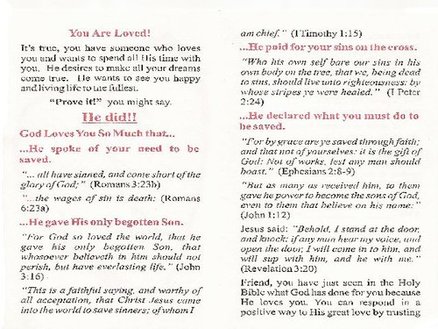 You Are Loved!
It's true, you have someone who loves
you and wants to spend all His time with
you. He desires to make all your dreams
come true. He wants to see you happy
and living life to the fullest.
"Prove it!" you might say.
He did!!
God Loves You So Much that...
...He spoke of your need to be
saved.
"... all have sinned, and come short of the
glory of God;" (Romans 3:23b)
"...the wages of sin is death; (Romans
6:23a)
...He gave His only begotten Son.
"For God so loved the world, that he
gave his only begotten Son, that
whosoever believeth in him should not
perish, but have everlasting life." (John
3:16)
"This is a faithful saying, and worthy of
all acceptation, that Christ Jesus came
into the world to save sinners; of whom I
am chief." (I Timothy 1:15)
...He paid for your sins on the cross.
"Who his own self bare our sins in his
own body on the tree, that we, being dead
to sins, should live unto righteousness: by
whose stripes ye were healed." (I Peter
2:24)
...He declared what you must do to
be saved.
"For by grace are ye saved through faith;
and that not of yourselves: it is the gift of
God: Not of works, lest any man should
boast." (Ephesians 2:8-9)
"But as many as received him, to them
gave he power to become the sons of God,
even to them that believe on his name:"
(John 1:12)
Jesus said: "Behold, I stand at the door,
and knock: if any man hear my voice, and
open the door, I will come in to him, and
will sup with him, and he with me."
(Revelation 3:20)
Friend, you have just seen in the Holy
Bible what God has done for you because
He loves you. You can respond in a
positive way to His great love by trusting